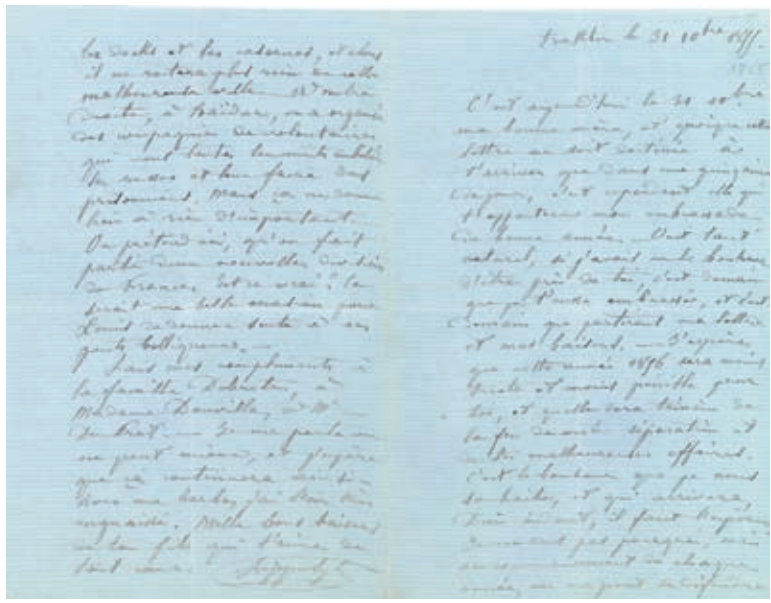 les docks et les casernes, et alors
il ne restera plus rien de cette
malheureuse ville.
droite, à Baïdar, on a organisé
des compagnies de volontaires
qui vont toutes les nuits
les russes et leur faire des
prisonniers. Mais ça ne donne
lieu à rien d'important.
On prétend ici, qu'on fait
partir deux nouvelles divisions
de France. Est-ce vrai? Ce
serait une belle occasion pour
Louis de donner suite à ses
goûts belliqueux.
Fais mes compliments à
la famille à
Madame à Mr
Je me porte on
ne peut mieux, et j'espère
que ça continuera ainsi
Mille bons baisers
de ton fils qui t'aime de
tout cœur.
le 31 10bre 1855.
C'est aujourd'hui le 31 10bre
ma bonne mère, et quoique cette
lettre ne soit destinée à
t'arriver que dans une quinzaine
de jours, c'est cependant elle qui
t'apportera mon embrassade
de bonne année. C'est tout
naturel, si j'avais eu le bonheur
d'être près de toi, c'est demain
que je t'aurais embrassée, et c'est
demain que partiront ma lettre
et mes baisers. J'espère
que cette année 1856 sera moins
triste et moins pénible pour
toi, et qu'elle sera témoin de
la fin de notre séparation et
malheureuses affaires.
C'est le bonheur que je nous
souhaite, et qui arrivera,
Dieu aidant, il faut l'espérer